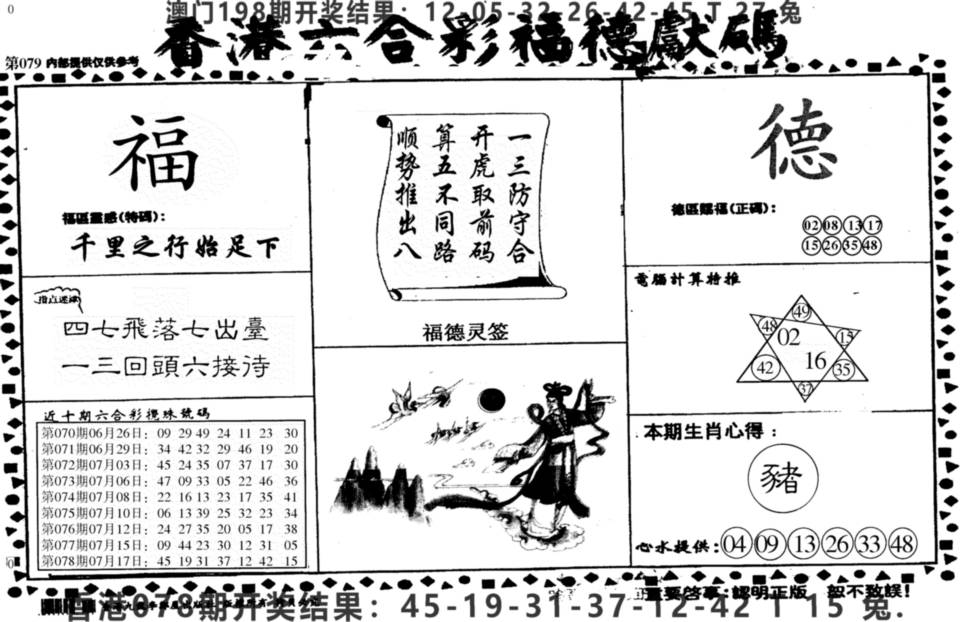 澳门198期开奖结果：12-05-32-26-42-45 T 27 兔
香港六合彩福德獻碼
第079 内部提供仅供参考
福
福區靈感(特碼)：
千里之行始足下
指点迷津
四七飛落七出臺
一三回頭六接待
近十期六合彩攪珠號碼
第070期06月26日：09 29 49 24 11 23 30
第071期06月29日：34 42 32 29 46 19 20
第072期07月03日：45 24 35 07 37 17 30
第073期07月06日：47 09 33 05 22 46 36
第074期07月08日：22 16 13 23 17 35 41
第075期07月10日：06 13 39 25 32 23 34
第076期07月12日：24 27 35 20 05 17 38
第077期07月15日：09 44 23 30 12 31 05
第078期07月17日：45 19 31 37 12 42 15
一三防守合
开虎取前码
算五不同路
顺势推出八
福德灵签
德
德區賜福(正碼)：
02 08 13 17
15 26 35 48
電腦計算特推
49
48 02 15
16
42 35
32
本期生肖心得：
豬
心水提供：04 09 13 26 33 48
重要啓事：認明正版 恕不致誤！
香港078期开奖结果：45-19-31-37-12-42 T 15 兔.